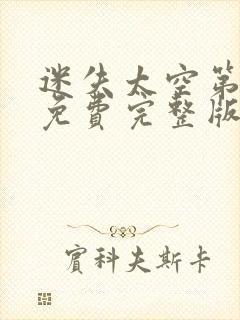 迷失太空第
免费完整版
賓科夫斯卡